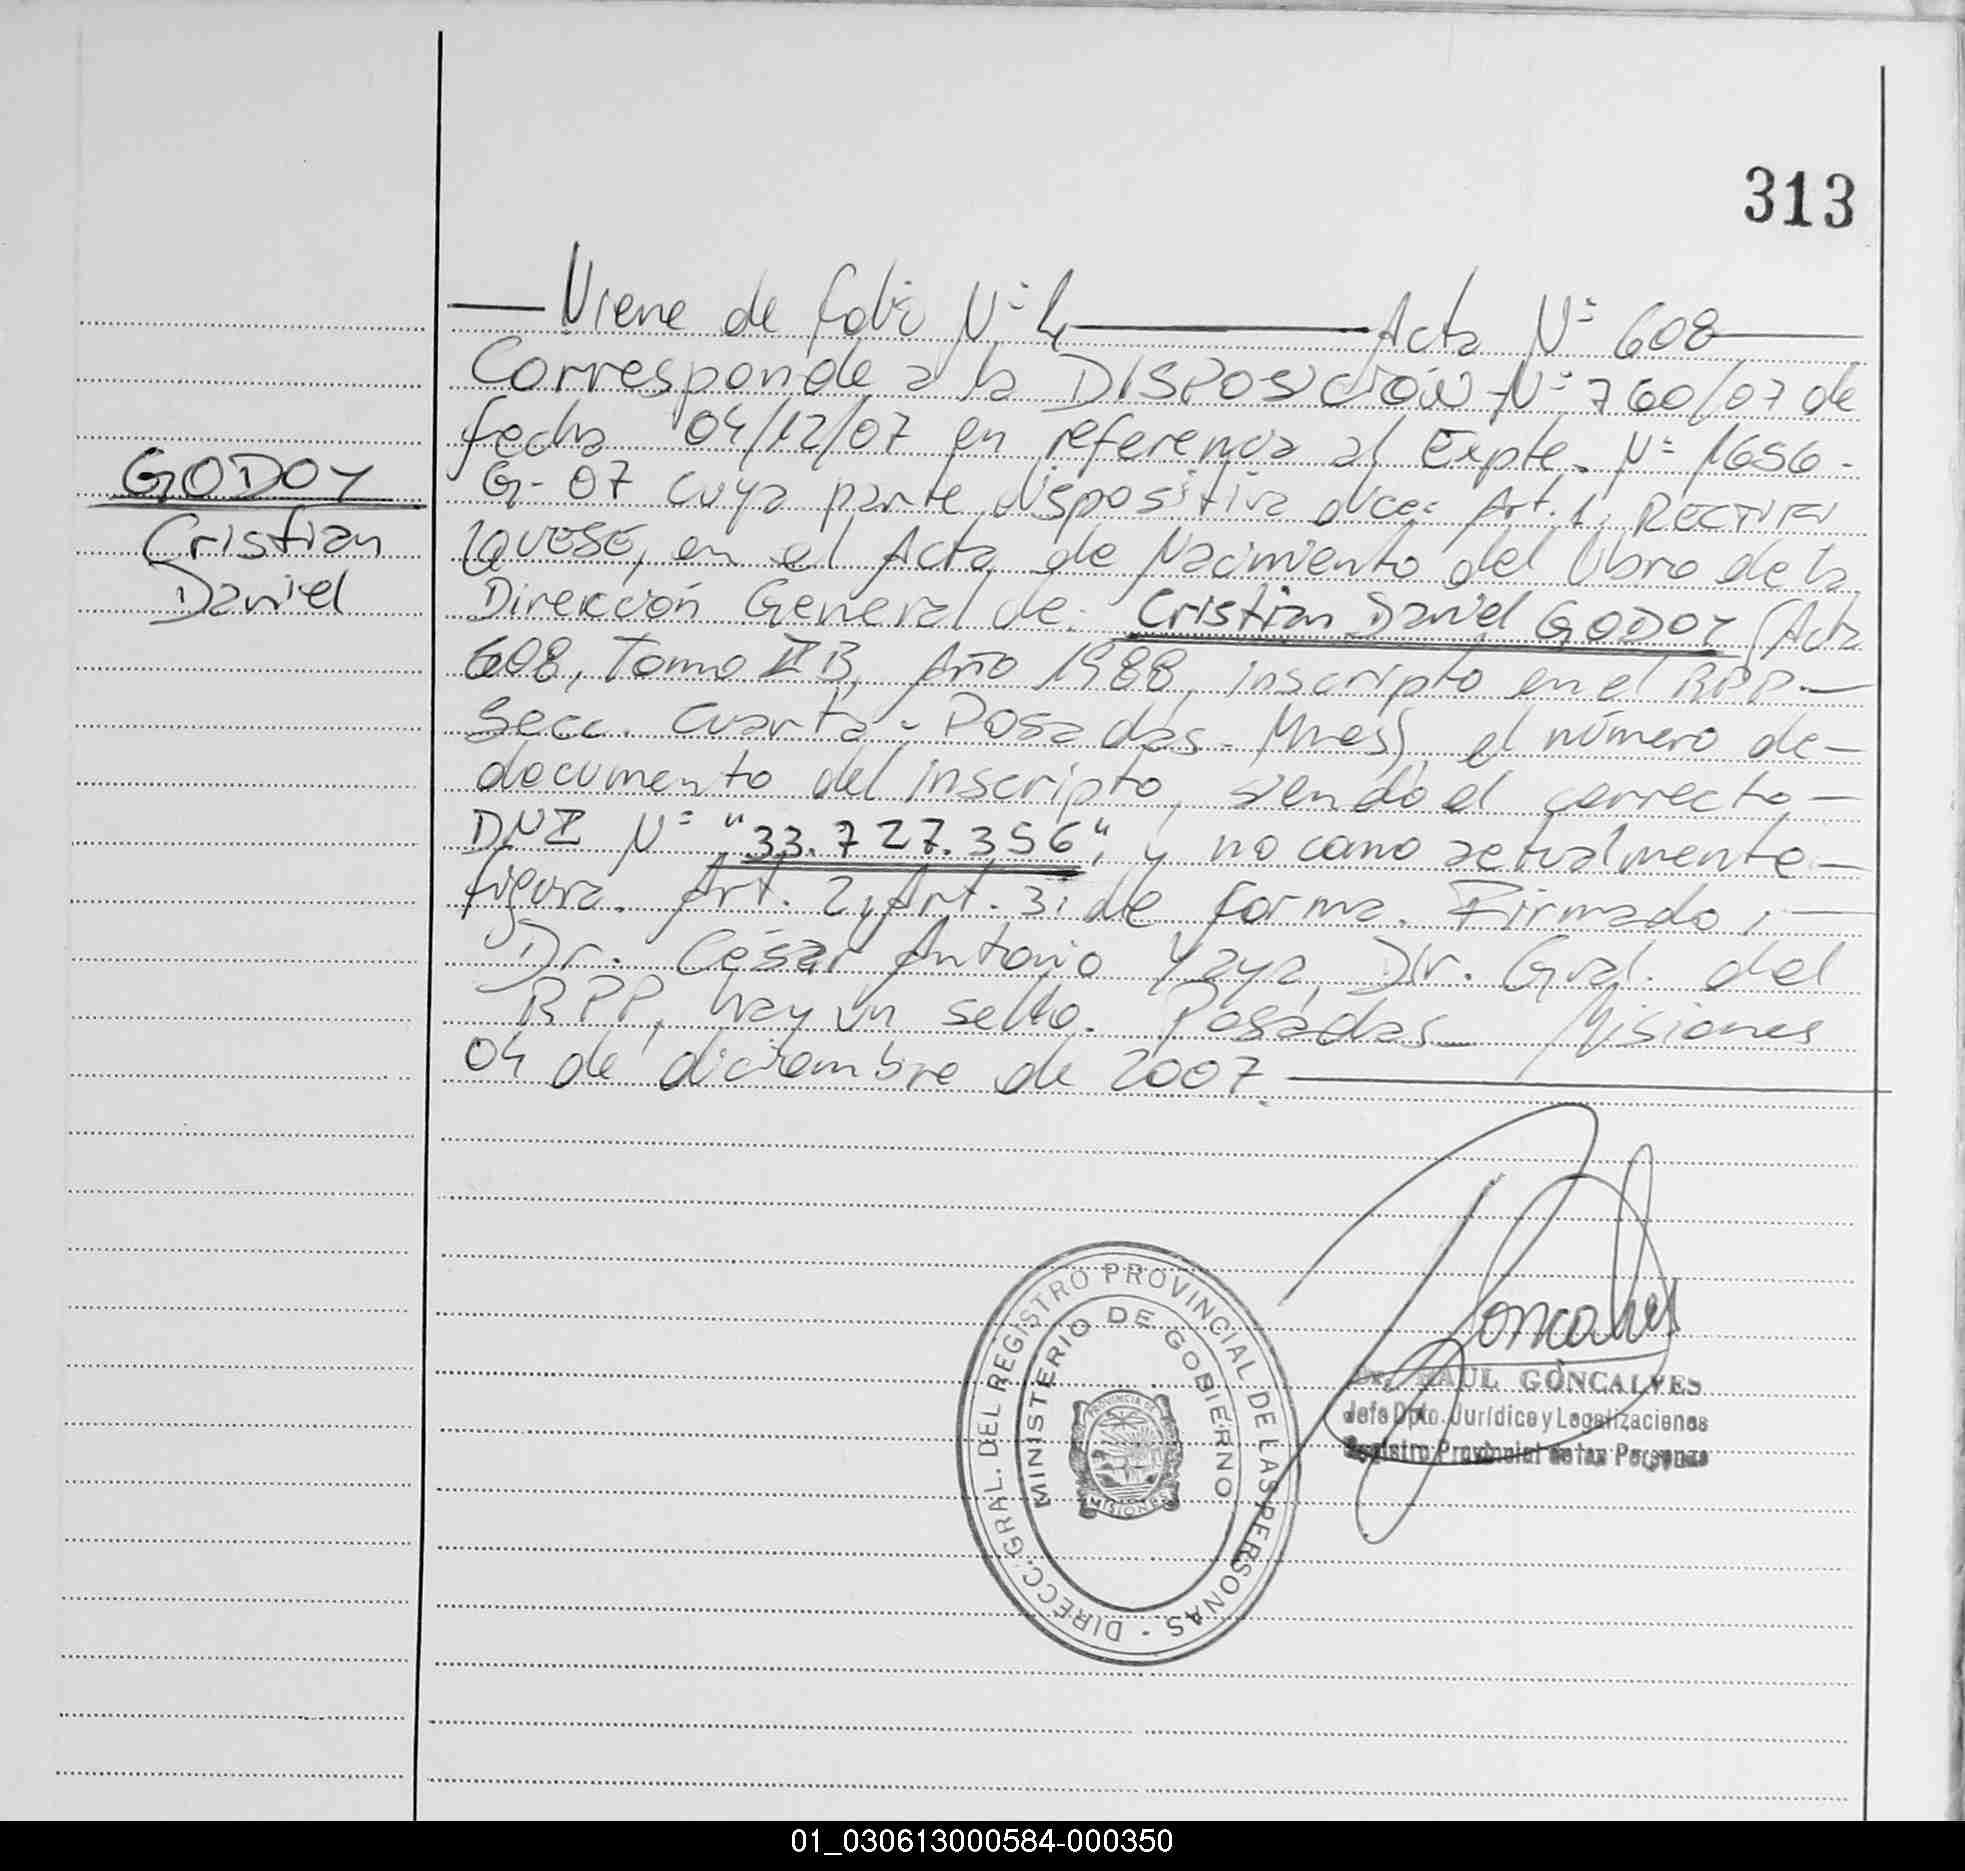 313
Viene de folio Nº 4 Acta Nº 608
Corresponde a la DISPOSICION Nº 760/07 de
fecha 04/12/07 en referencia al Expte. Nº 1656-
G-07 cuya parte dispositiva dice: Art. 1: RECTIFI
QUESE, en el Acta de Nacimiento del libro de la
GODOY
Cristian
Daniel
Dirección General de: Cristian Daniel GODOY (Acta
608, Tomo II B, Año 1988, inscripto en el RPP.-
Secc. Cuarta - Posadas - Mnes), el número de-
documento del inscripto, siendo el correcto-
DNI Nº "33.727.356", y no como actualmente-
figura. Art. 2, Art. 3: de forma. Firmado:-
Dr. César Antonio Yaya, Dir. Gral. del
RPP, hay un sello. Posadas - Misiones
04 de diciembre de 2007
Goncalves
Dr. RAUL GONCALVES
Jefe Dpto. Jurídico y Legalizaciones
Registro Provincial de las Personas
DIRECC. GRAL. DEL REGISTRO PROVINCIAL DE LAS PERSONAS -
MINISTERIO DE GOBIERNO
PROVINCIA DE
MISIONES
01_030613000584-000350